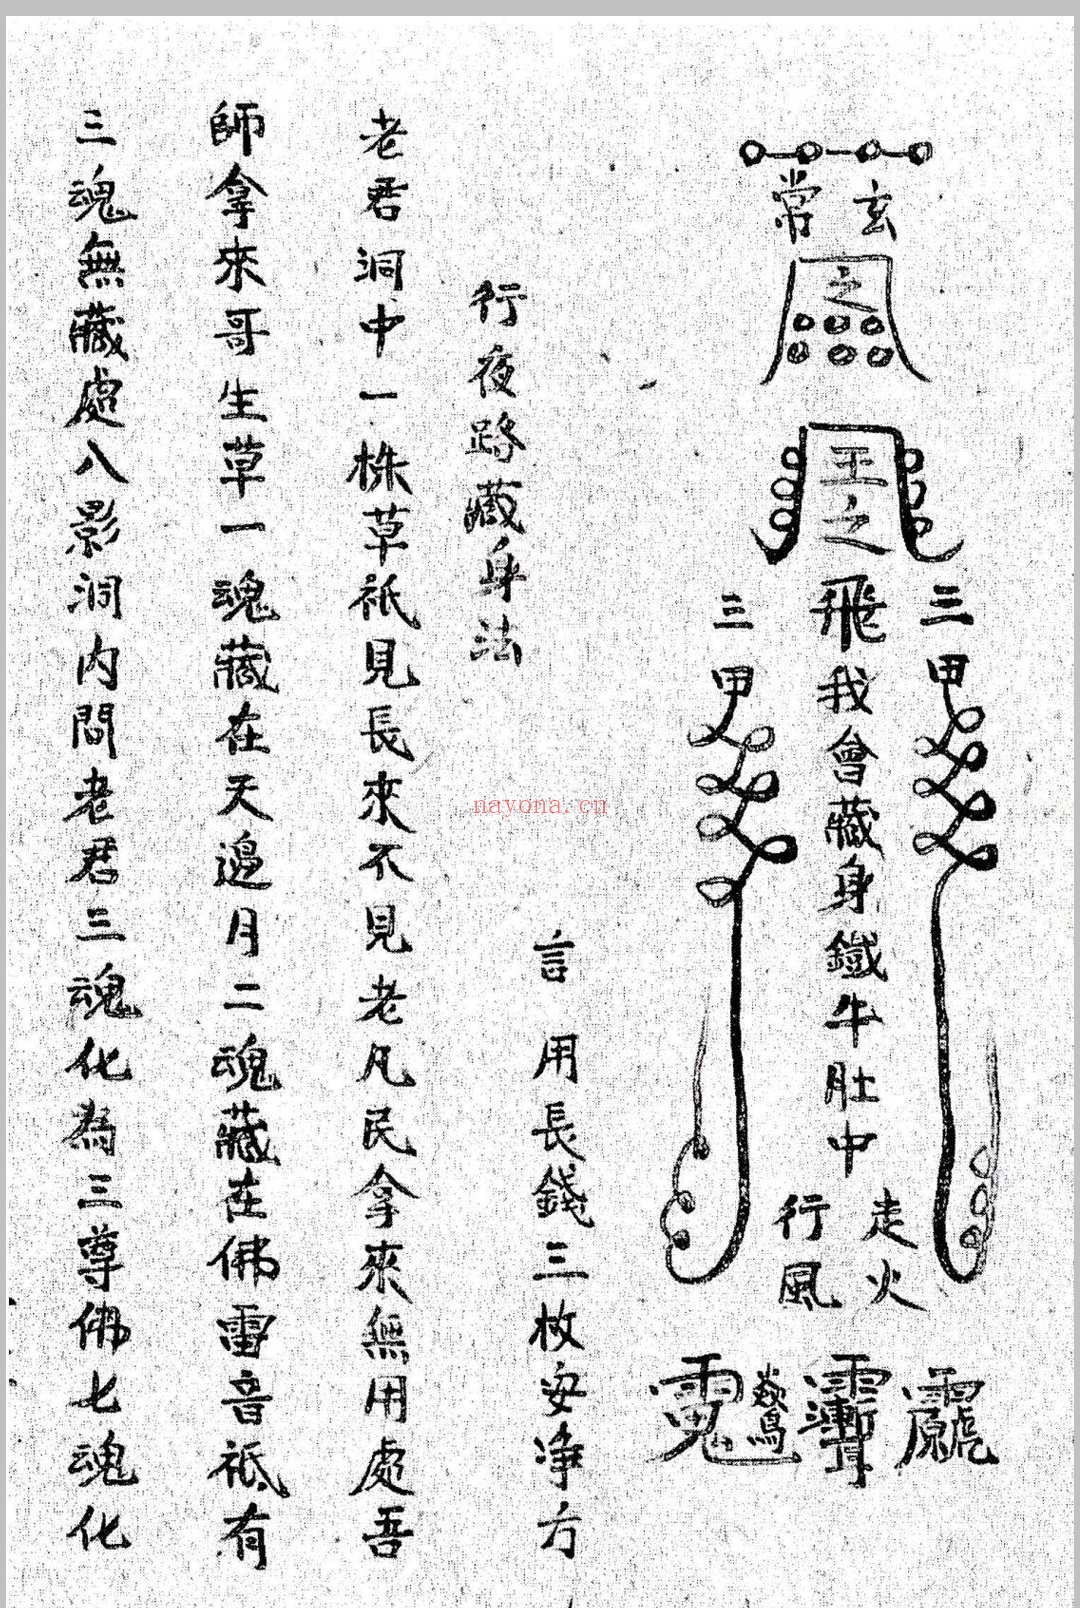 玄常
之
王之
三甲
飛我會藏身鐵牛肚中
三甲
走火
行風
言用長錢三枚安净方
行夜路藏身法
老君洞中一株草祇見長來不見老凡民拿來無用處吾
師拿來哥生草一魂藏在天邉月二魂藏在佛雷音祗有
三魂無藏處八影洞内問老君三魂化為三尊佛七魂化
nayona.cn